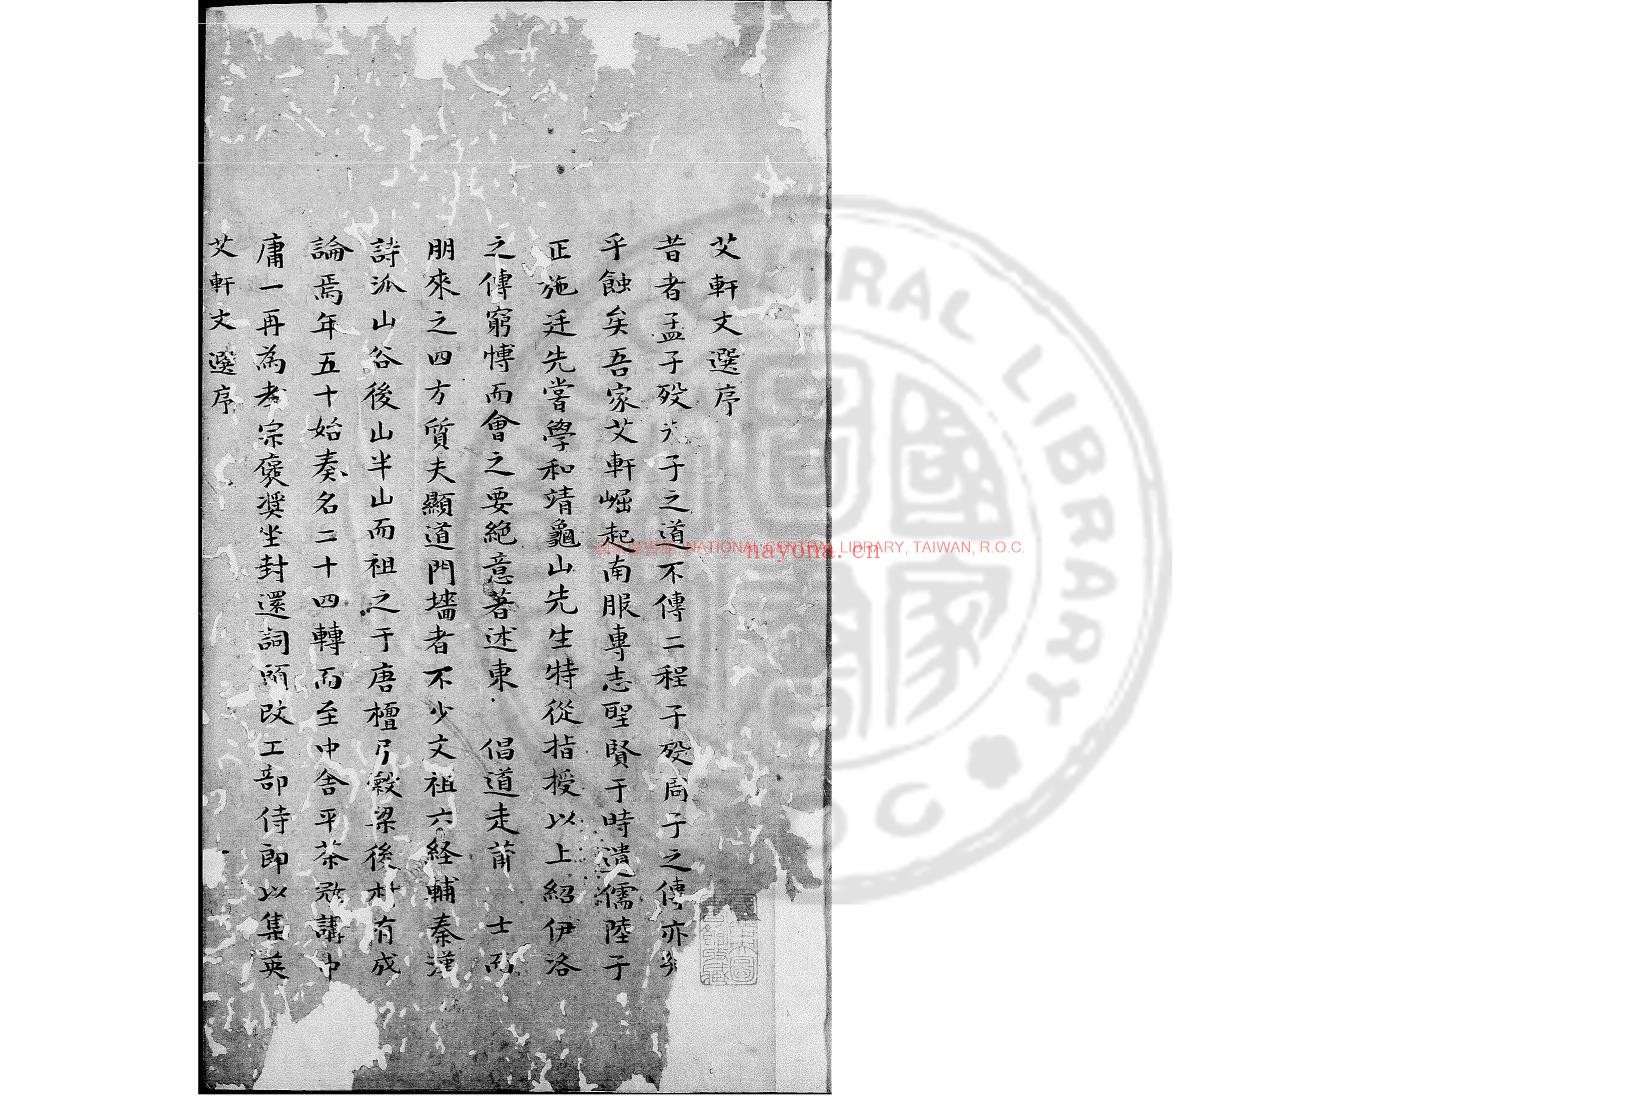 艾軒文選序
昔者孟子歿夫子之道不傳二程子歿周子之傳亦幾
乎蝕矣吾家艾軒崛起南服專志聖賢于時遺儒陸子
正施廷先嘗學和靖龜山先生特從指授以上紹伊洛
之傳窮博而會之要絕意著述東 倡道走莆 士而
朋來之四方質夫顯道門墻者不少文祖六経輔秦漢
詩派山谷後山半山而祖之于唐檀弓穀梁後村有成
論焉年五十始奏名二十四轉而至中舍平茶寇講中
庸一再為孝宗褒奨坐封還詞頭改工部侍郎以集英
艾軒文選序
NATIONAL CENTRAL LIBRARY, TAIWAN, R.O.C.
nayona.cn